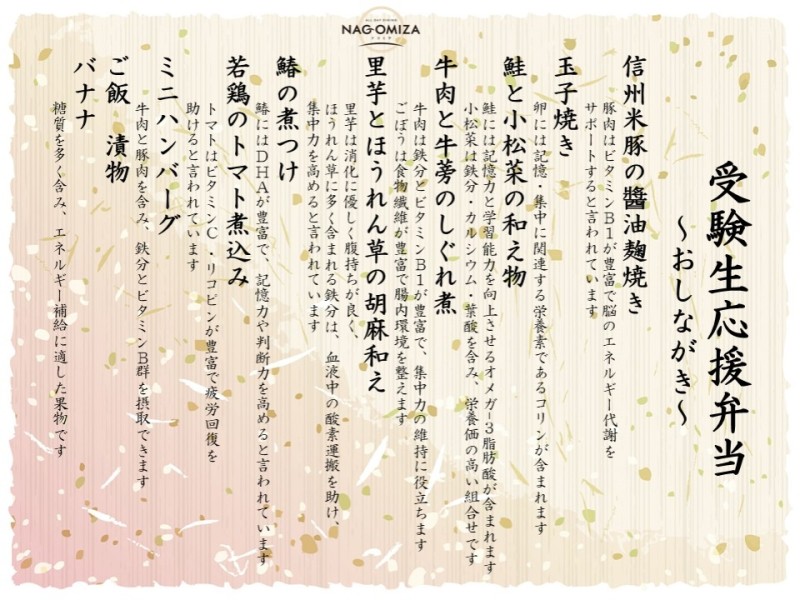 ALL DAY DINING
NAGOMIZA
受験生応援弁当
〜おしながき〜
信州米豚の醬油麹焼き
豚肉はビタミンB1が豊富で脳のエネルギー代謝を
サポートすると言われています
玉子焼き
卵には記憶・集中に関連する栄養素であるコリンが含まれます
鮭と小松菜の和え物
鮭には記憶力と学習能力を向上させるオメガ-3脂肪酸が含まれます
小松菜は鉄分・カルシウム・葉酸を含み、栄養価の高い組合せです
牛肉と牛蒡のしぐれ煮
牛肉は鉄分とビタミンB1が豊富で、集中力の維持に役立ちます
ごぼうは食物繊維が豊富で腸内環境を整えます
里芋とほうれん草の胡麻和え
里芋は消化に優しく腹持ちが良く、
ほうれん草に多く含まれる鉄分は、血液中の酸素運搬を助け、
集中力を高めると言われています
鰆の煮つけ
鰆にはDHAが豊富で、記憶力や判断力を高めると言われています
若鶏のトマト煮込み
トマトはビタミンC・リコピンが豊富で疲労回復を
助けると言われています
ミニハンバーグ
牛肉と豚肉を含み、鉄分とビタミンB群を摂取できます
ご飯　漬物
バナナ
糖質を多く含み、エネルギー補給に適した果物です